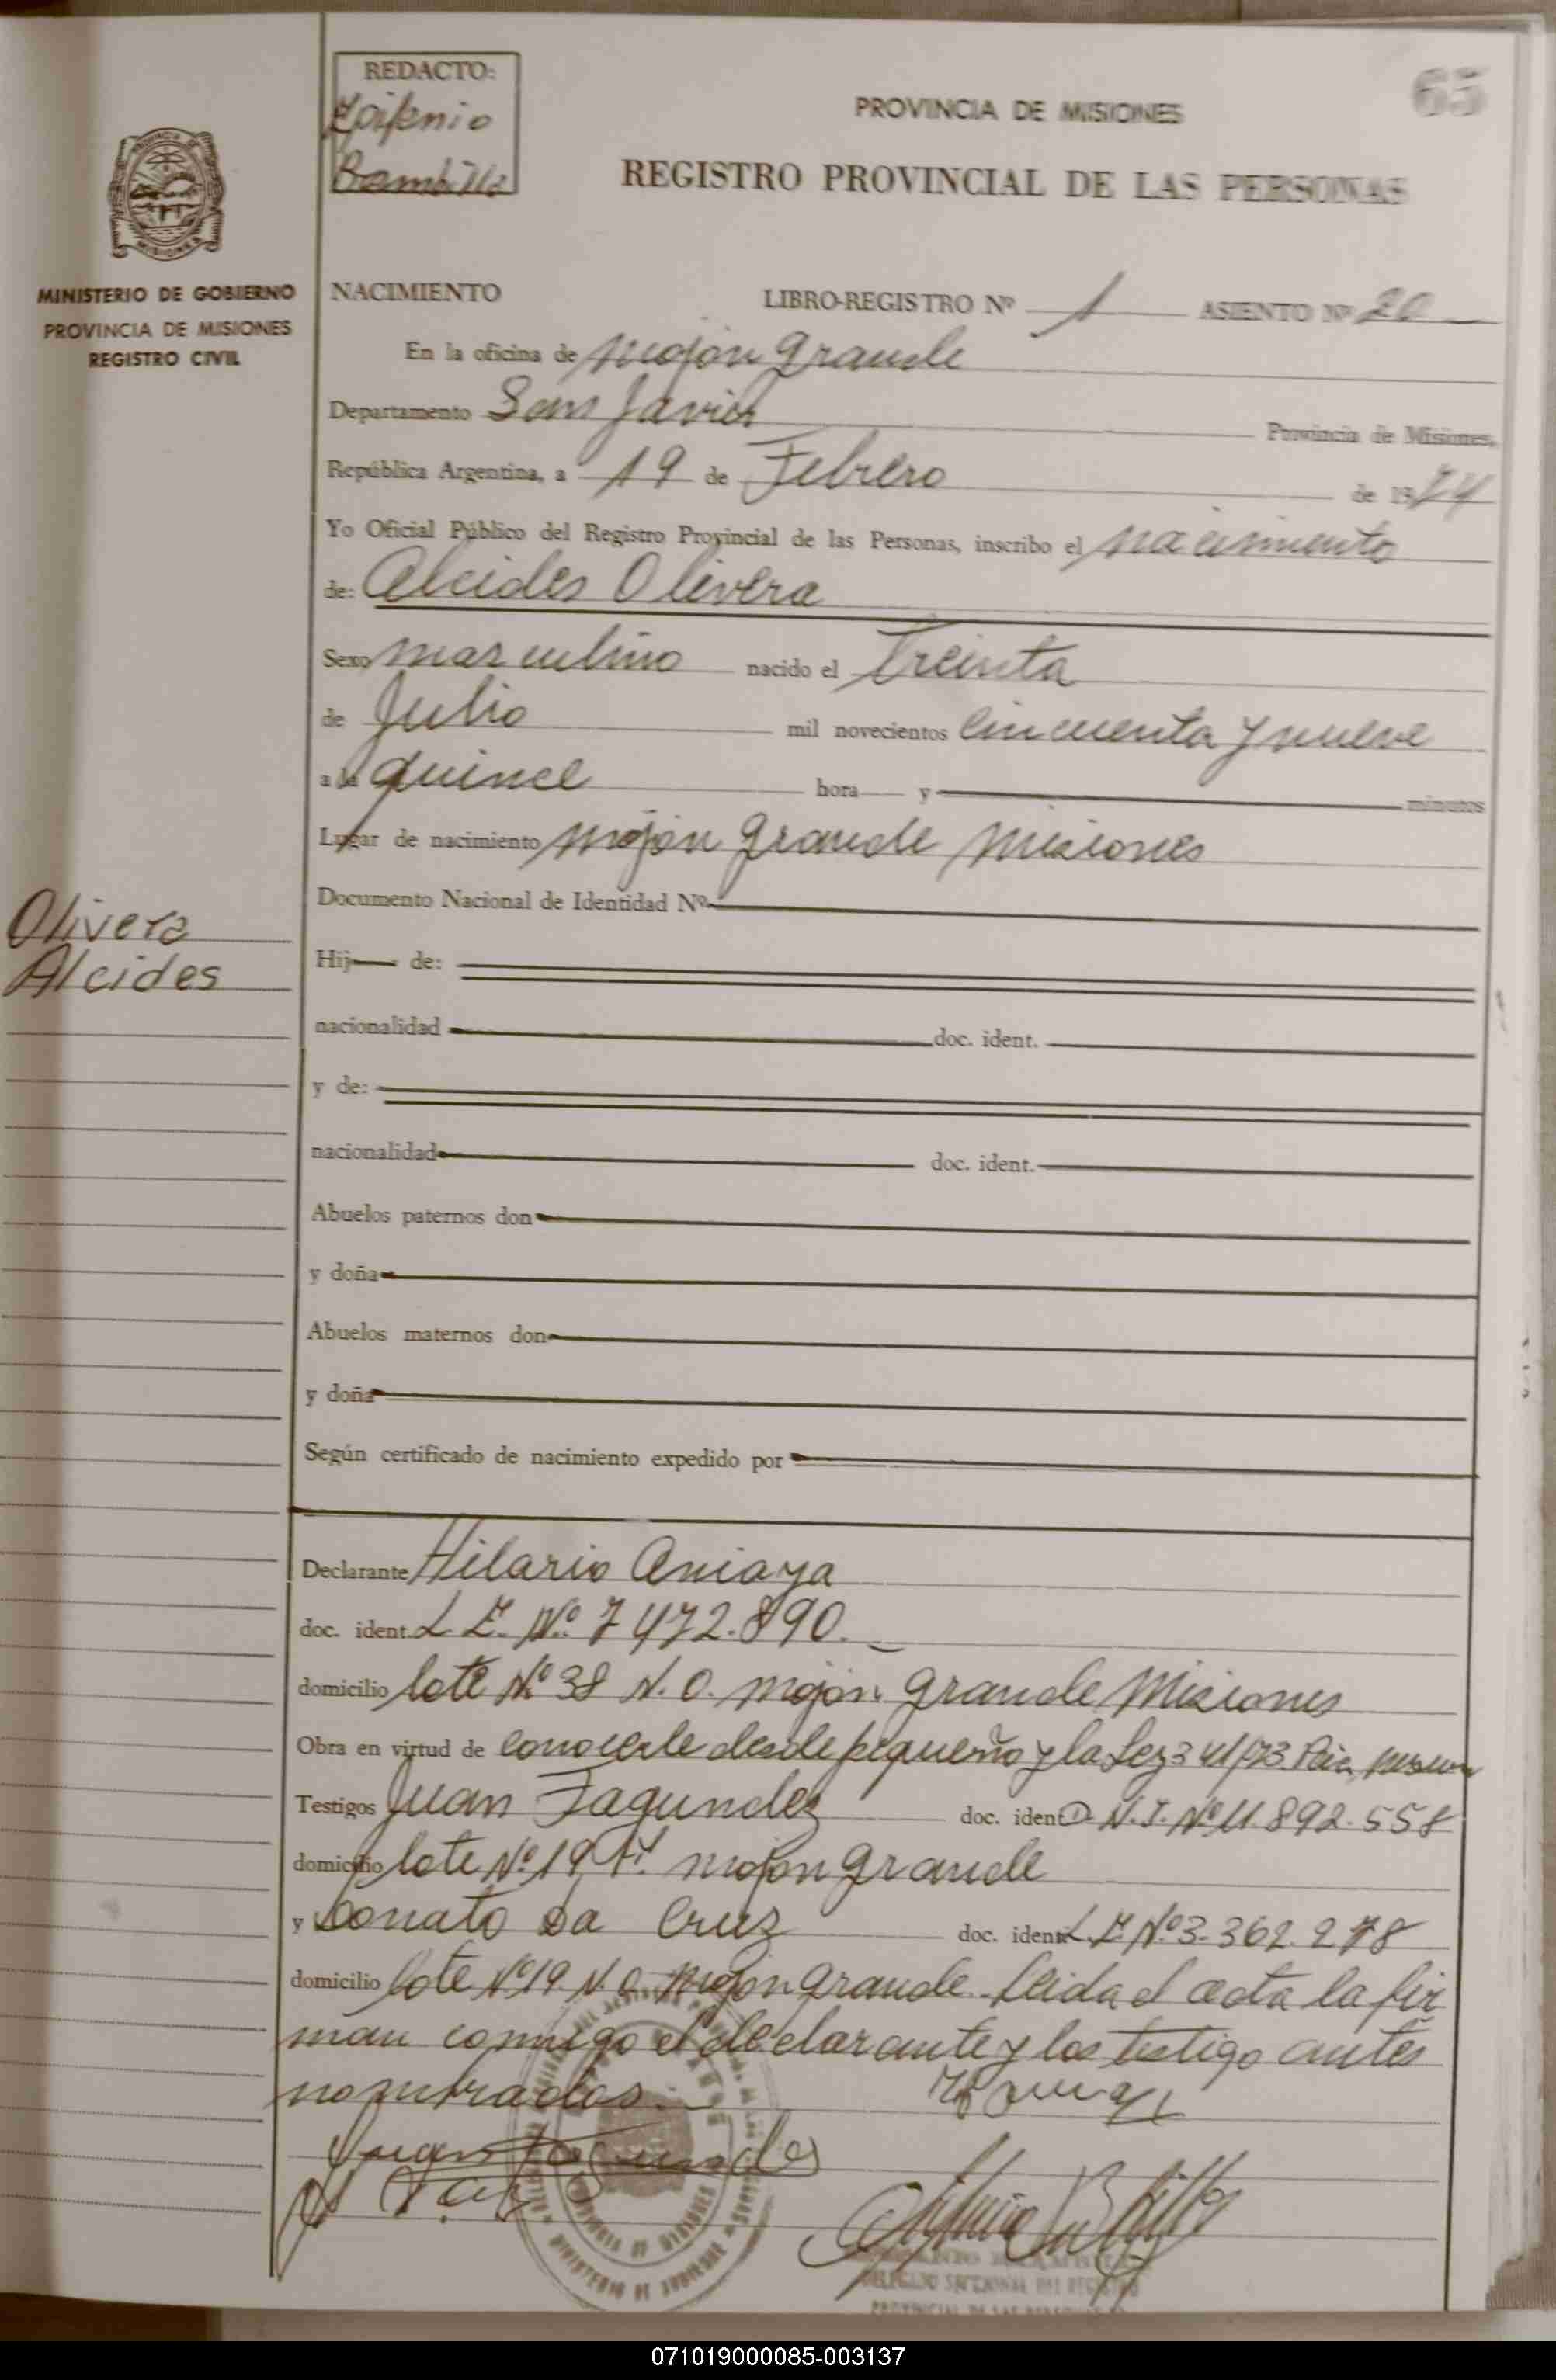 65
REDACTO:
Epifanio
Bambilla
PROVINCIA DE MISIONES
REGISTRO PROVINCIAL DE LAS PERSONAS
MISIONES
MINISTERIO DE GOBIERNO
PROVINCIA DE MISIONES
REGISTRO CIVIL
NACIMIENTO LIBRO-REGISTRO Nº 1 ASIENTO Nº 20
En la oficina de Mojón Grande
Departamento San Javier Provincia de Misiones,
República Argentina, a 19 de Febrero de 1974
Yo Oficial Público del Registro Provincial de las Personas, inscribo el nacimiento
de: Alcides Olivera
Sexo masculino nacido el Treinta
de Julio mil novecientos cincuenta y nueve
a la quince hora y minutos
Lugar de nacimiento Mojón Grande Misiones
Documento Nacional de Identidad Nº
Olivera
Alcides
Hij de:
nacionalidad doc. ident.
y de:
nacionalidad doc. ident.
Abuelos paternos don
y doña
Abuelos maternos don
y doña
Según certificado de nacimiento expedido por
Declarante Hilario Amaya
doc. ident. L E. Nº 7472.890.
domicilio lote Nº 38 N. O. Mojón Grande Misiones
Obra en virtud de conocerle desde pequeño y la Ley 341/73
Testigos Juan Fagundez doc. ident D. N. I. Nº 11.892.558
domicilio lote Nº 19 Mojon Grande
y Donato Da Cruz doc. ident L.E. Nº 3.362.278
domicilio lote Nº 19 N. O. Mojon Grande. Leida el acta la fir
man conmigo el declarante y los testigo antes
nombrados.
Juan Fagundes
PROVINCIA DE MISIONES
071019000085-003137